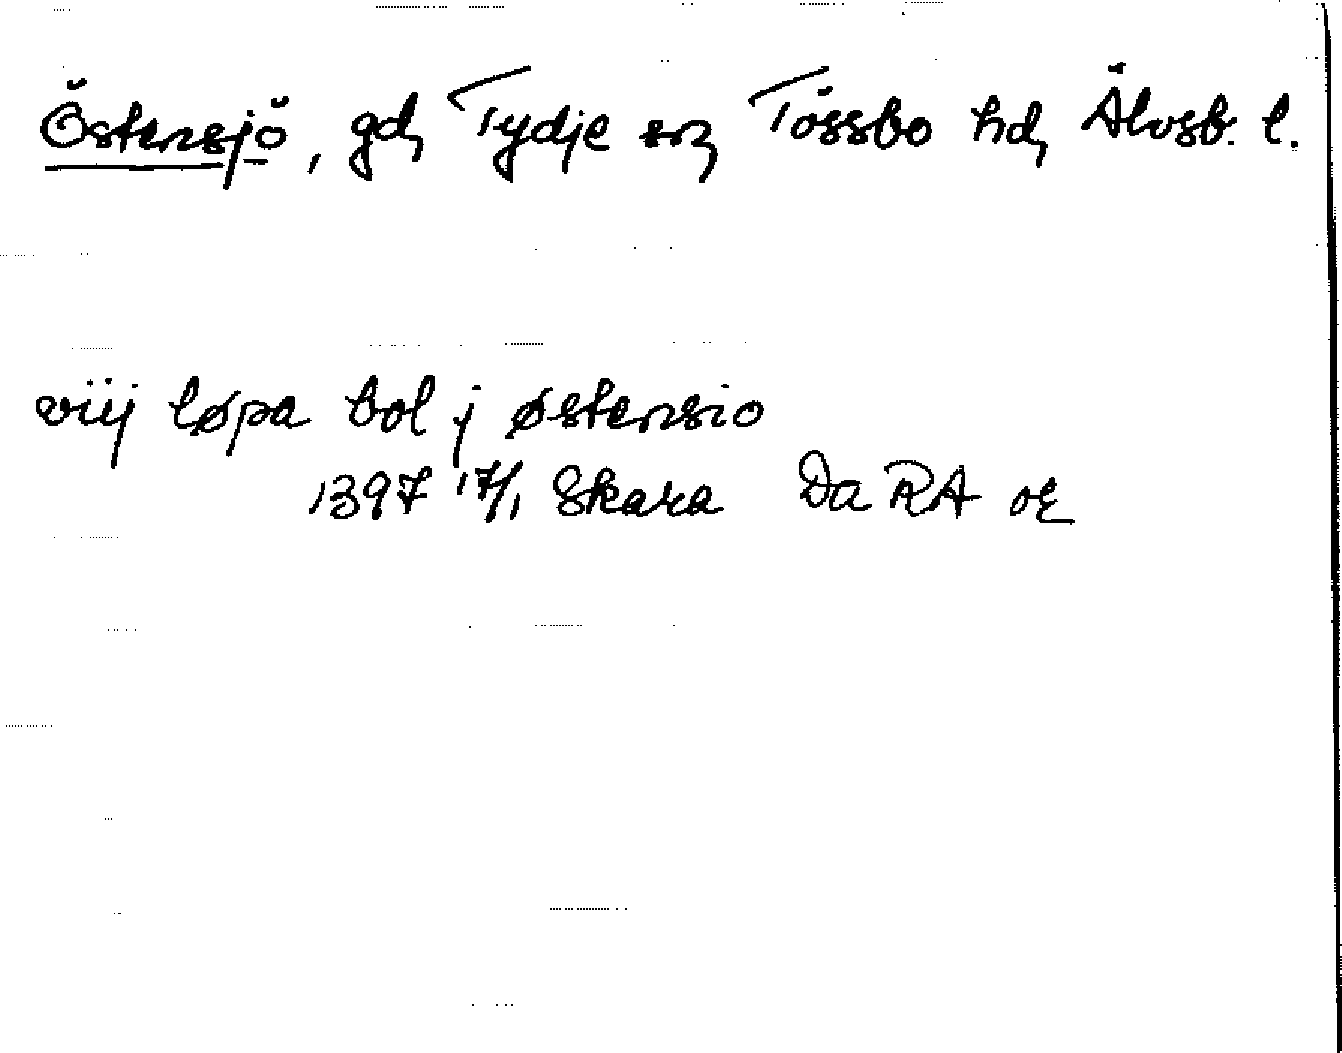 Östensjö, gd, Tydje sn, Tössbo hd, Älvsb. l.
viij løpa bol j østensio
1397 17/1 Skara Da RA or